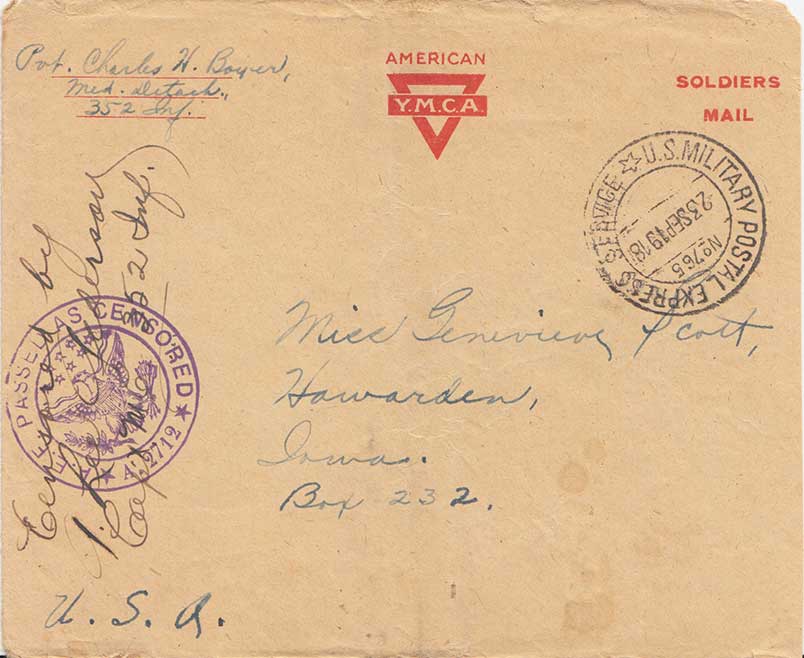 Pvt. Charles H. Bower,
Med. Detach.,
352 Inf.
AMERICAN
Y.M.C.A.
SOLDIERS
MAIL
U.S. MILITARY POSTAL EXPRESS SERVICE
23 SEP 1918
No 765
Miss Genevieve Scott,
Hawarden,
Iowa.
Box 232.
Censored by
Capt 352 Inf.
PASSED AS CENSORED
A.E.F.
A.2712
U. S. A.